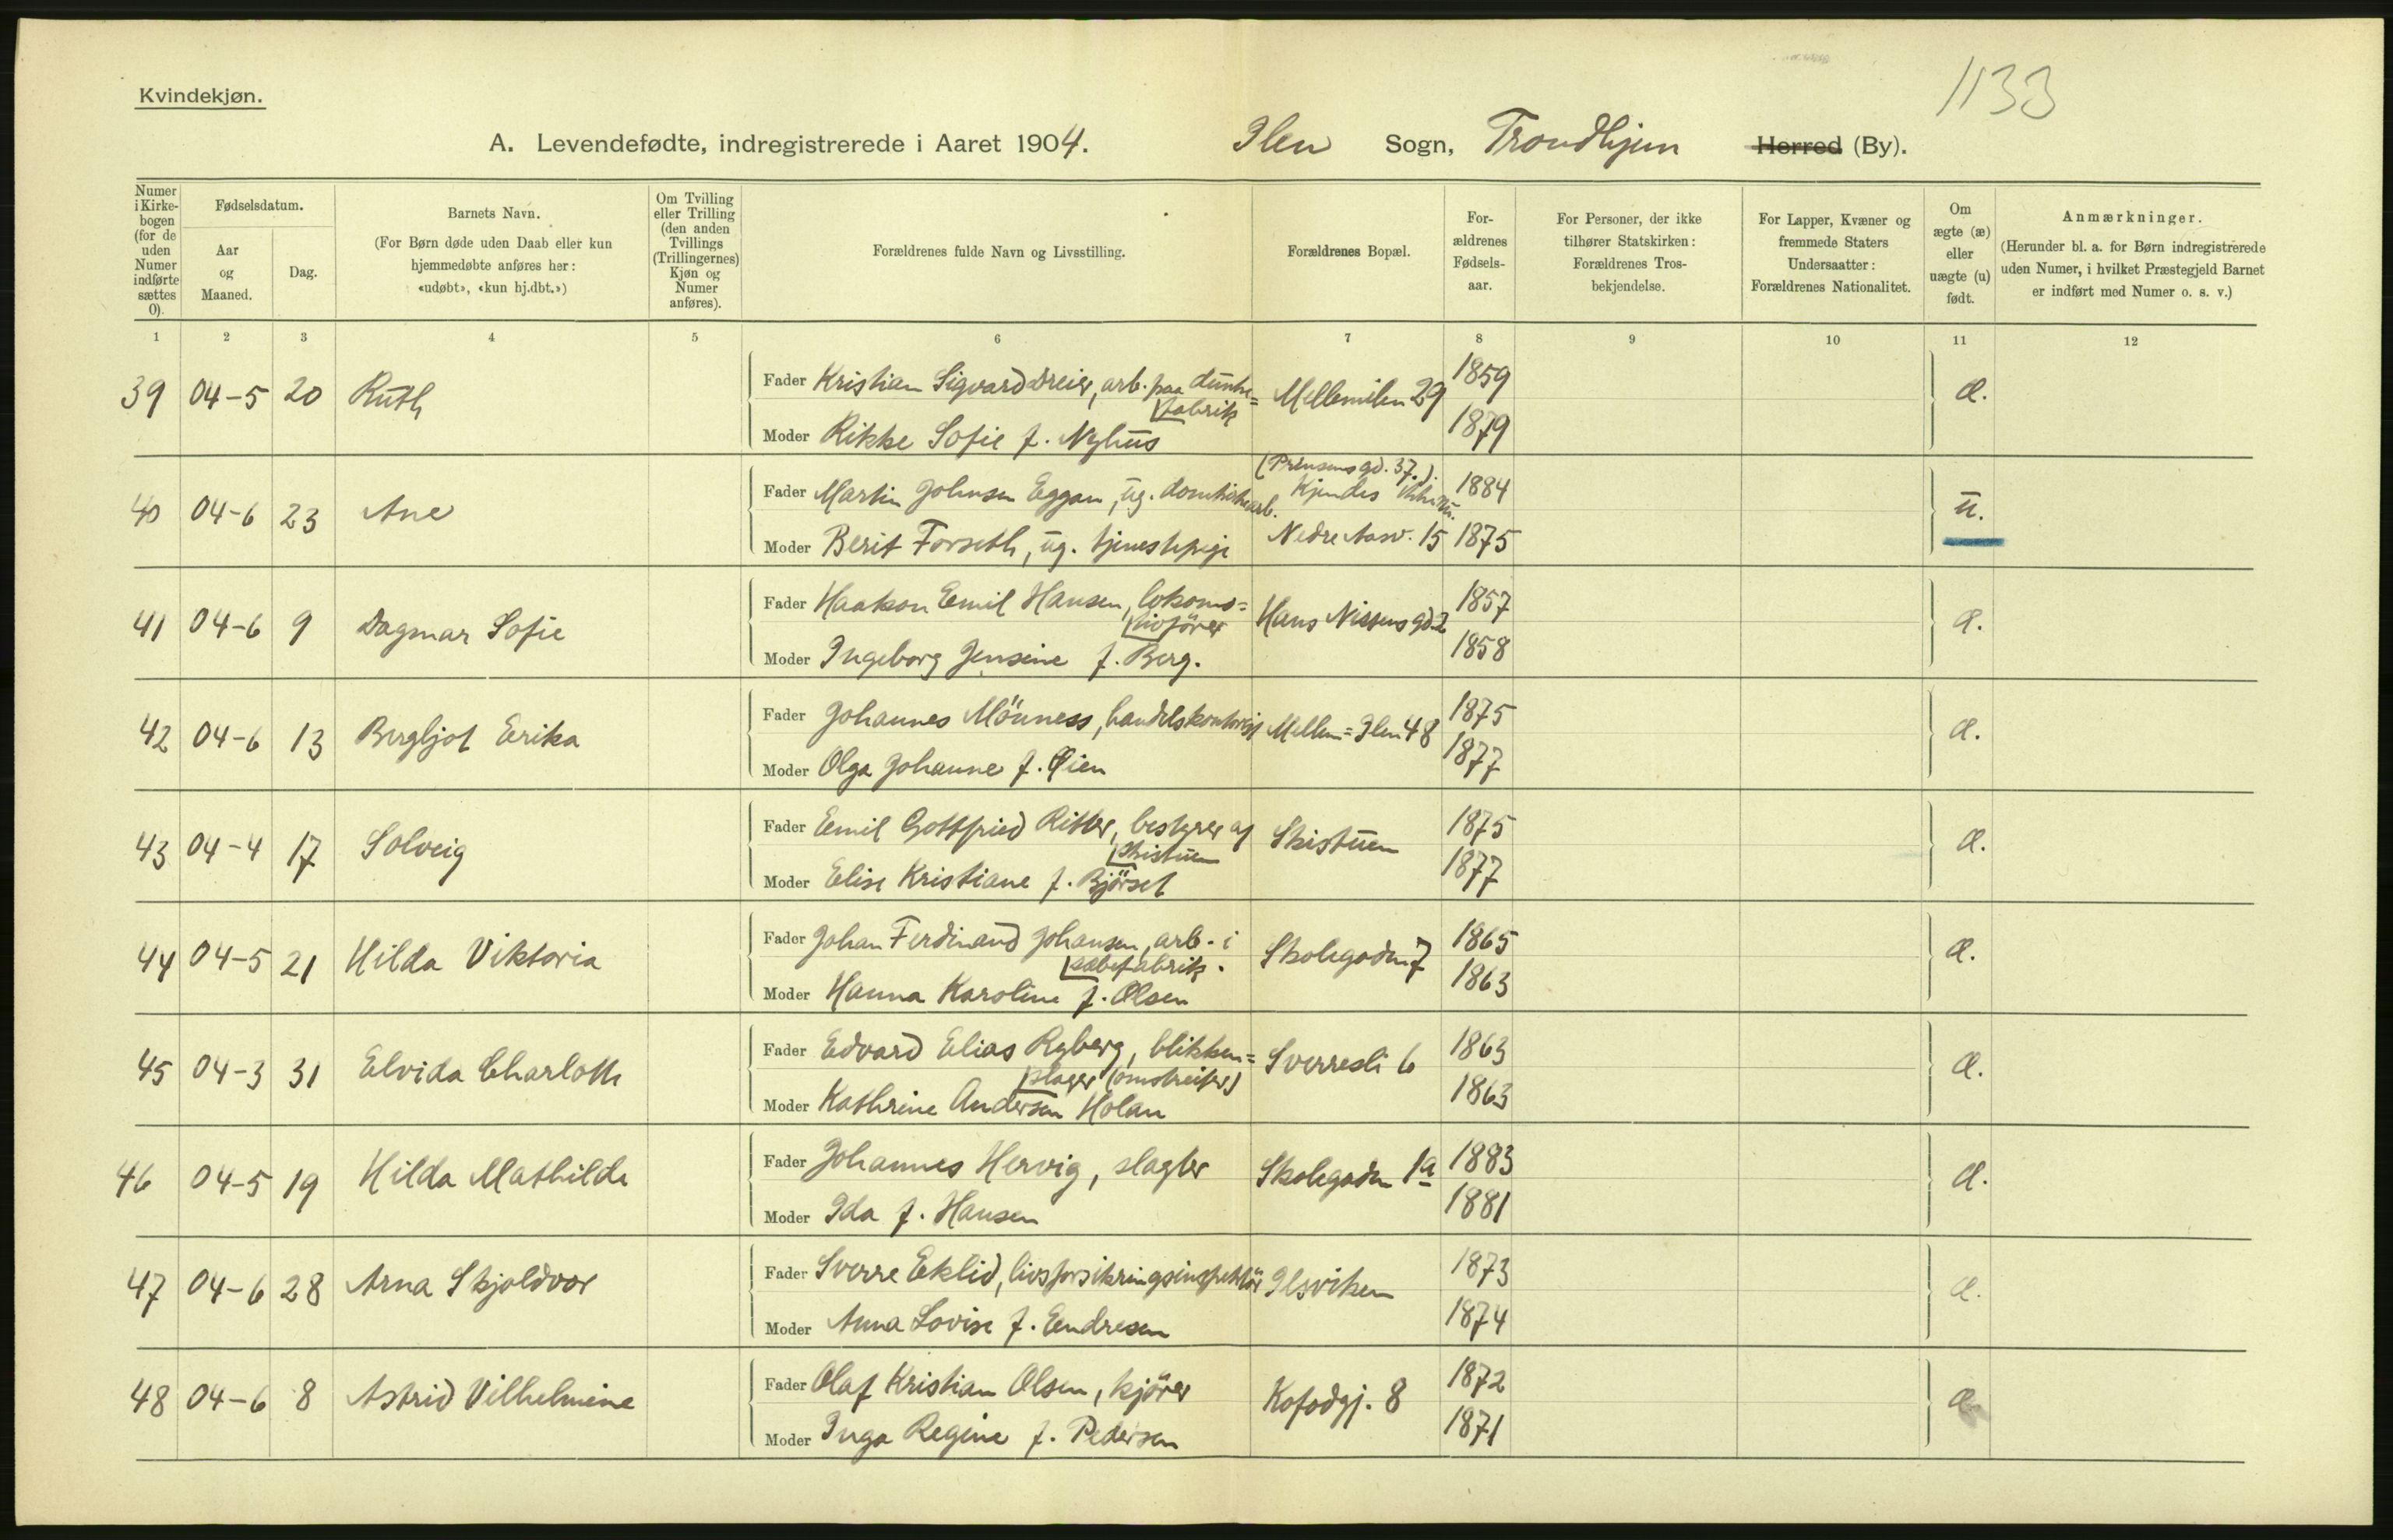 1133
Kvindekjøn.
A. Levendefødte, indregistrerede i Aaret 1904. Ilen Sogn, Trondhjem Herred (By).
Numer i Kirke-bogen (for de uden Numer indførte sættes 0).
Fødselsdatum.
Aar og Maaned.
Dag.
Barnets Navn.
(For Børn døde uden Daab eller kun hjemmedøbte anføres her: «udøbt», «kun hj.dbt.»)
Om Tvilling eller Trilling (den anden Tvillings (Trillingernes) Kjøn og Numer anføres).
Forældrenes fulde Navn og Livsstilling.
Forældrenes Bopæl.
For-ældrenes Fødsels-aar.
For Personer, der ikke tilhører Statskirken: Forældrenes Tros-bekjendelse.
For Lapper, Kvæner og fremmede Staters Undersaatter: Forældrenes Nationalitet.
Om ægte (æ) eller uægte (u) født.
Anmærkninger.
(Herunder bl. a. for Børn indregistrerede uden Numer, i hvilket Præstegjeld Barnet er indført med Numer o. s. v.)
1 2 3 4 5 6 7 8 9 10 11 12
39 04-5 20 Ruth Fader Kristian Sigvard Dreier, arb. paa Mellemilen 29 1859 æ.
fabrik
Moder Rikke Sofie f. Nyhus 1879
(Prinsens gd. 37.).
40 04-6 23 Ane Fader Martin Johnsen Eggan, ug. Kjendes 1884 u.
Moder Berit Forseth, ug. tjenestepige Nedre 15 1875
41 04-6 9 Dagmar Sofie Fader Haakon Emil Hansen, lokomo= Hans Nissens gd. 2 1857 æ.
tivfører
Moder Ingeborg Jensine f. Berg. 1858
42 04-6 13 Bergljot Erika Fader Johannes Mönness, handelskontorist Mellem=Ilen 48 1875 æ.
Moder Olga Johanne f. Øien 1877
43 04-4 17 Solveig Fader Emil Gottfried Ritter, bestyrer af Skistuen 1875 æ.
Skistuen
Moder Elise Kristiane f. Björset 1877
44 04-5 21 Hilda Viktoria Fader Johan Ferdinand Johansen, arb. i Skolegaden 7 1865 æ.
sæbefabrik.
Moder Hanna Karoline f. Olsen 1863
45 04-3 31 Elvida Charlotte Fader Edvard Elias Ryberg, blikken= Sverresli 6 1863 æ.
slager (omstreifer)
Moder Kathrine Andersen Holan 1863
46 04-5 19 Hilda Mathilde Fader Johannes Hervig, slagter Skolegaden 1a 1883 æ.
Moder Ida f. Hansen 1881
47 04-6 28 Arna Skjoldvor Fader Sverre Eklid, livsforsikringsinspektör Ilsviken 1873 æ.
Moder Anna Lovise f. Endresen 1874
48 04-6 8 Astrid Vilhelmine Fader Olaf Kristian Olsen, kjörer Kofodgj. 8 1872 æ.
Moder Inga Regine f. Pedersen 1871